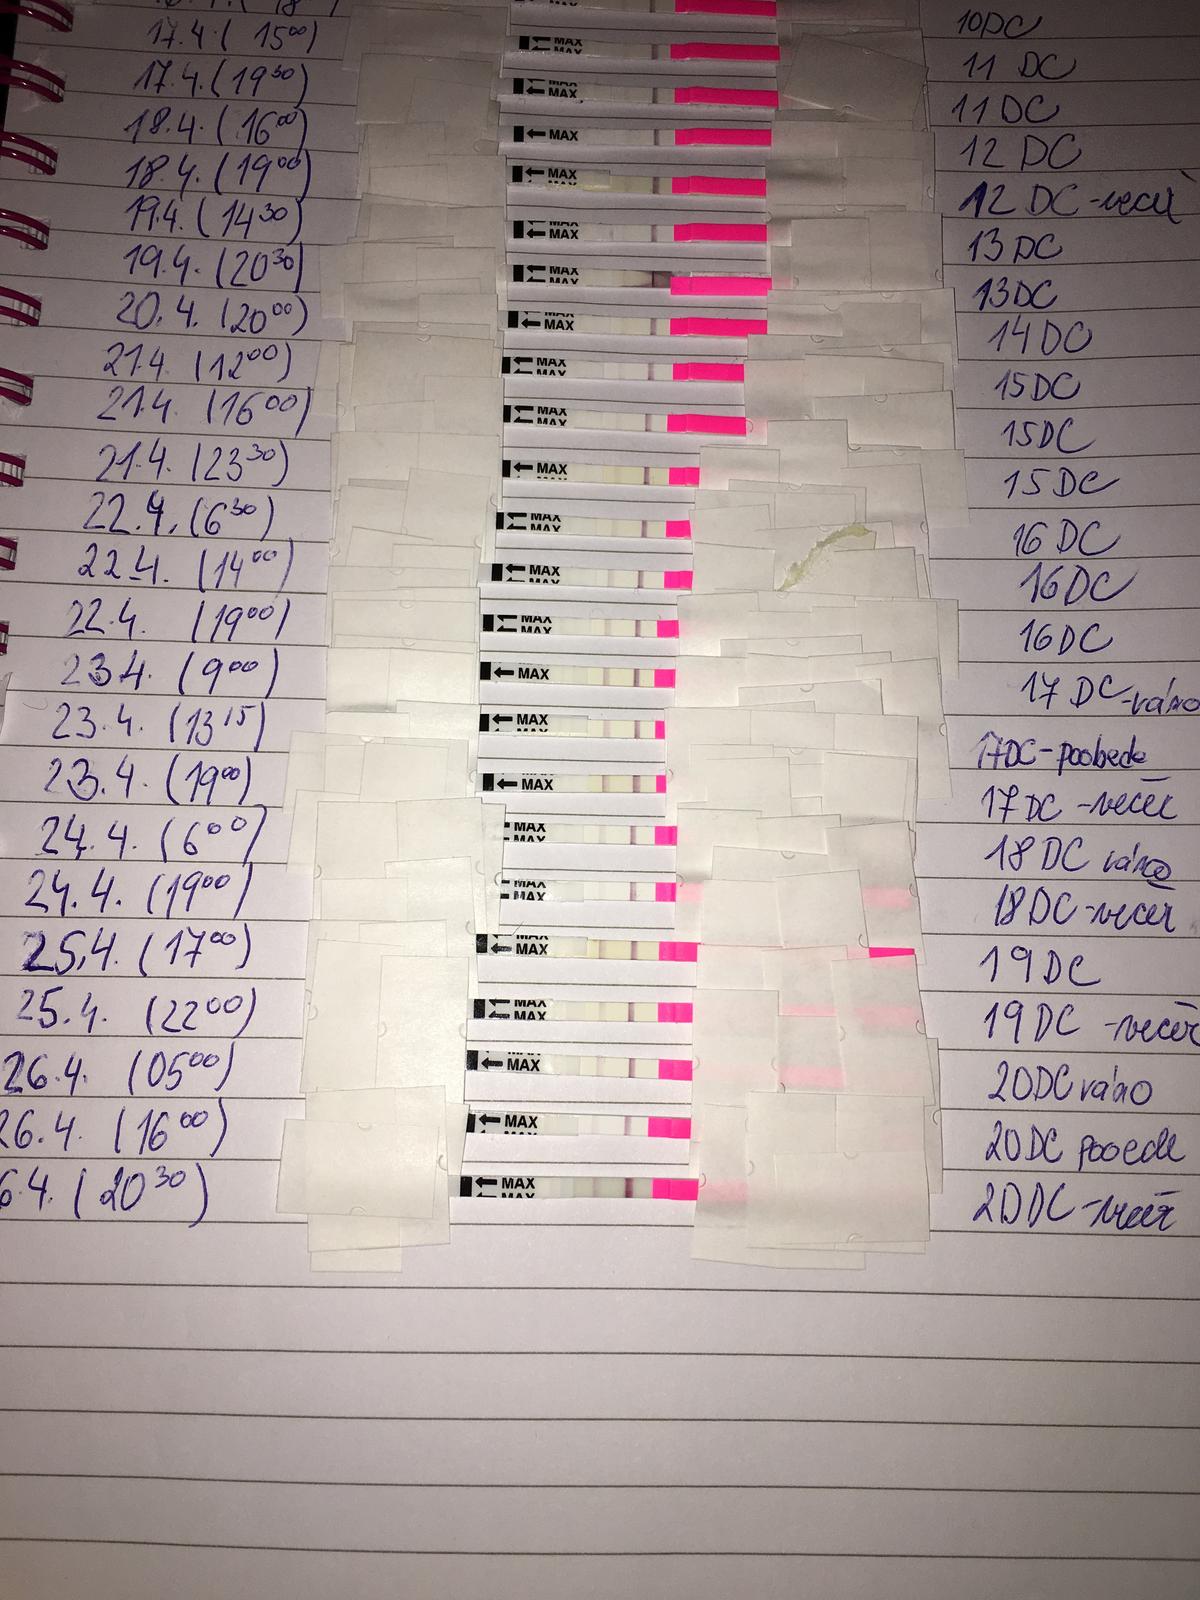 17.4. (15⁰⁰) MAX MAX 10DC
17.4. (19³⁰) MAX MAX 11 DC
18.4. (16⁰⁰) MAX 11 DC
18.4. (19⁰⁰) MAX MAX 12 DC
19.4. (14³⁰) MAX MAX 12 DC-večer
19.4. (20³⁰) MAX MAX 13 DC
20.4. (20⁰⁰) MAX MAX 13DC
21.4. (12⁰⁰) MAX MAX 14DC
21.4. (16⁰⁰) MAX MAX 15DC
21.4. (23³⁰) MAX MAX 15DC
22.4. (6³⁰) MAX MAX 15DC
22.4. (14⁰⁰) MAX MAX 16DC
22.4. (19⁰⁰) MAX MAX 16DC
23.4. (9⁰⁰) MAX 16DC
23.4. (13¹⁵) MAX MAX 17 DC-ráno
23.4. (19⁰⁰) MAX MAX 17DC-poobede
24.4. (6⁰⁰) MAX MAX 17DC-večer
24.4. (19⁰⁰) MAX MAX 18DC ráno
25.4. (17⁰⁰) MAX MAX 18DC-večer
25.4. (22⁰⁰) MAX MAX 19DC
26.4. (05⁰⁰) MAX MAX 19DC-večer
26.4. (16⁰⁰) MAX MAX 20DC ráno
6.4. (20³⁰) MAX MAX 20DC poobede
20DC-večer